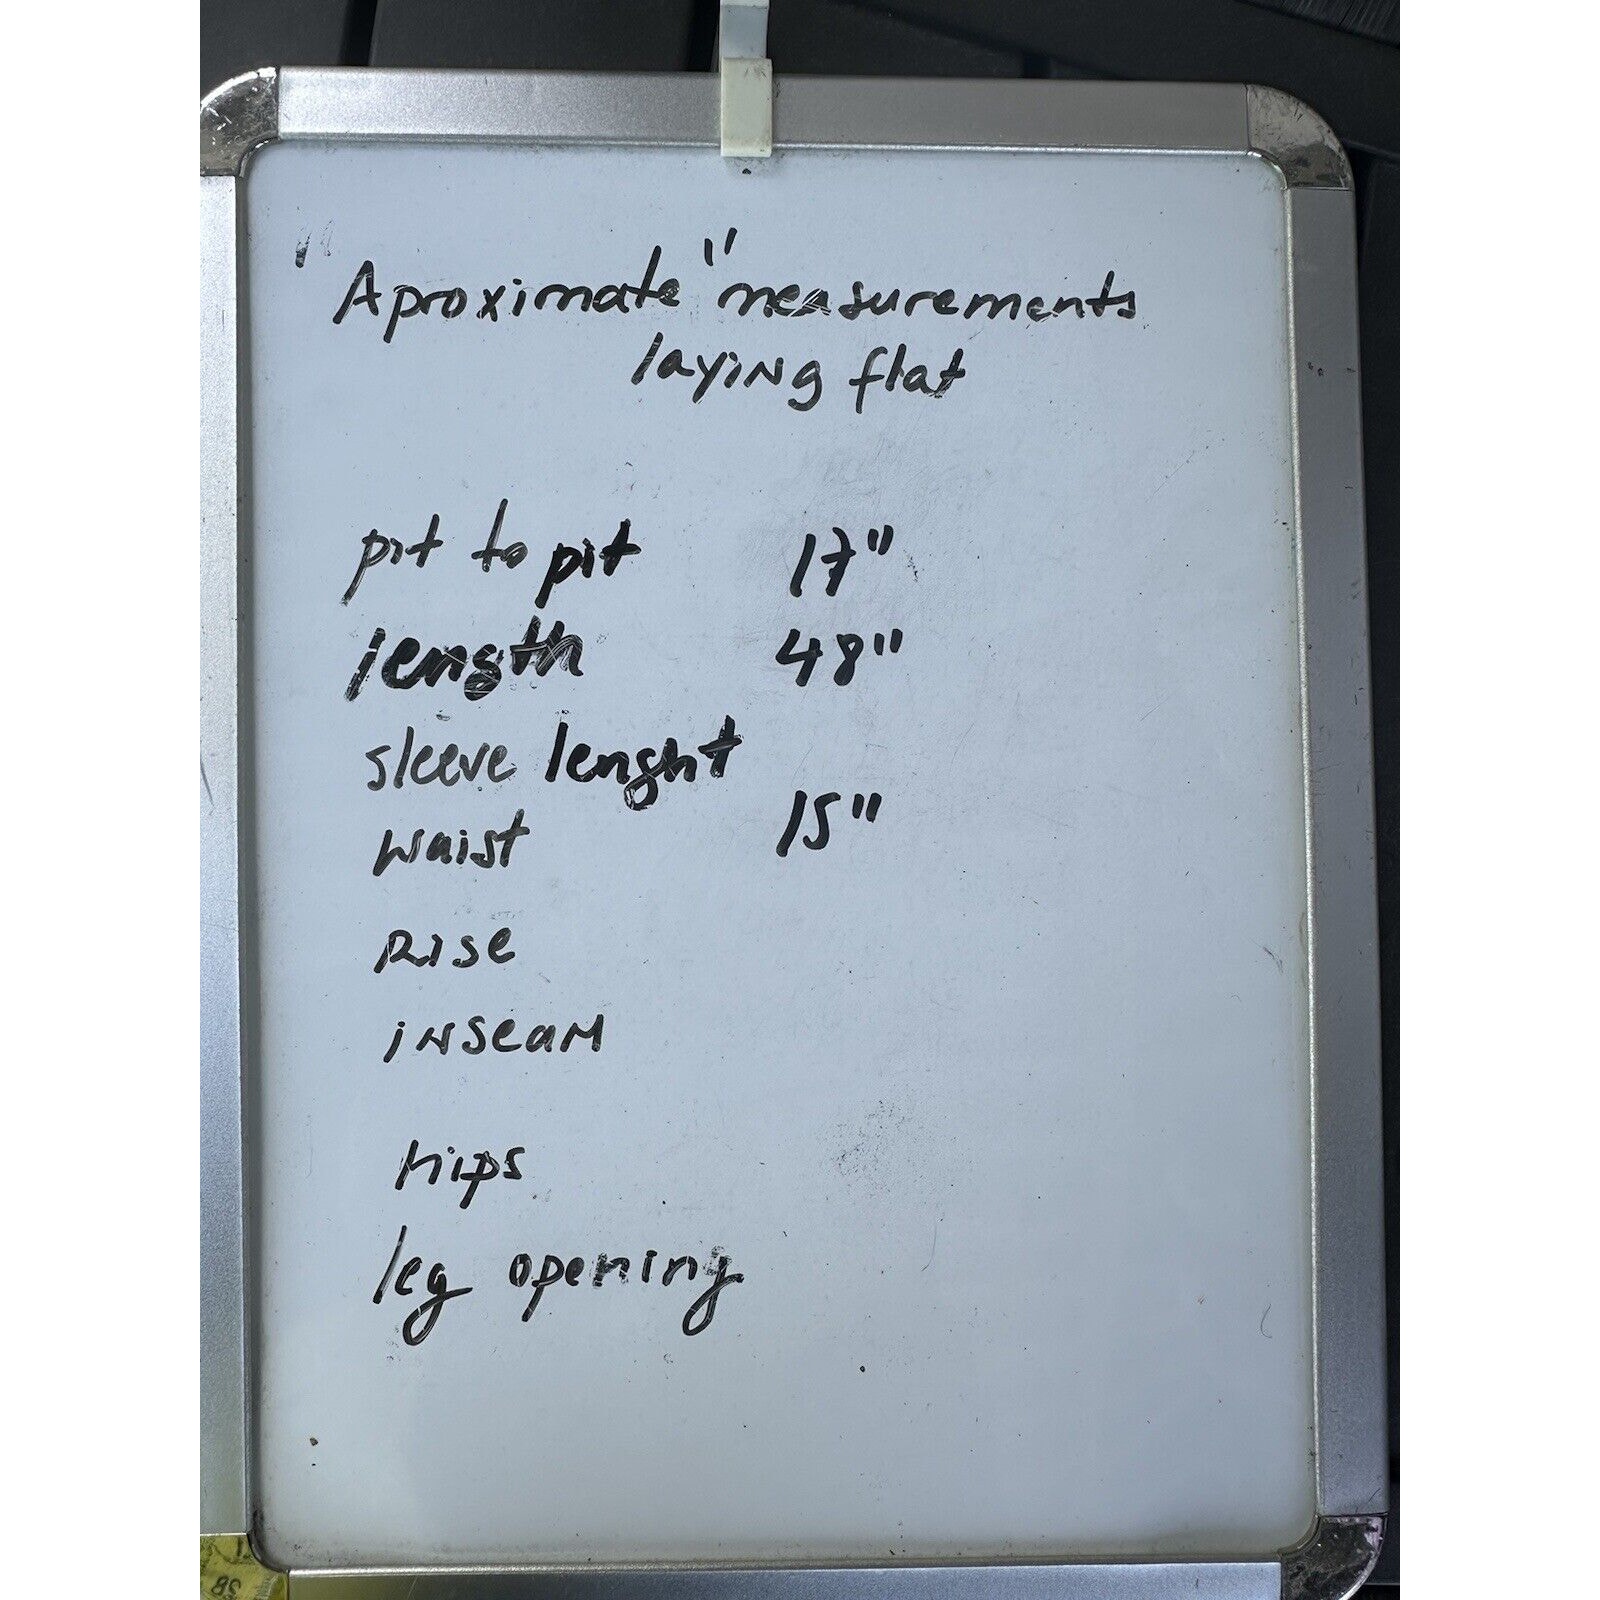 "Aproximate" measurements
laying flat
pit to pit 17"
length 48"
sleeve lenght
waist 15"
Rise
inseam
hips
leg opening